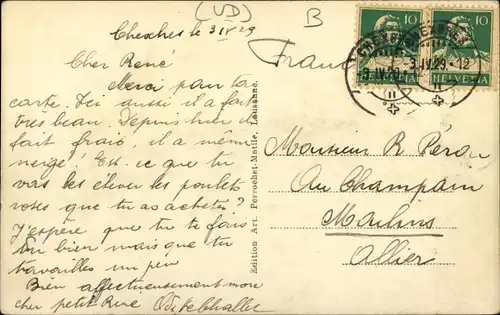 (VD)
B
Chexbres le 3 IV 29
France
10 10
HELVETIA HELVETIA
CHEXBRES
3.IV.29.-12
Cher René
Merci pour ta
carte. Ici aussi il a fait
très beau. Depuis hier il
fait frais, il a même
neigé! Est-ce que tu
vas les élever les poulets
roses que tu as achetés?
J'espère que tu te fais
du bien mais que tu
travailles un peu
Bien affectueusement mon
cher petit René
Edition Art. Perrochet-Matile, Lausanne
Monsieur R Péron
Au Champain
Moulins
Allier